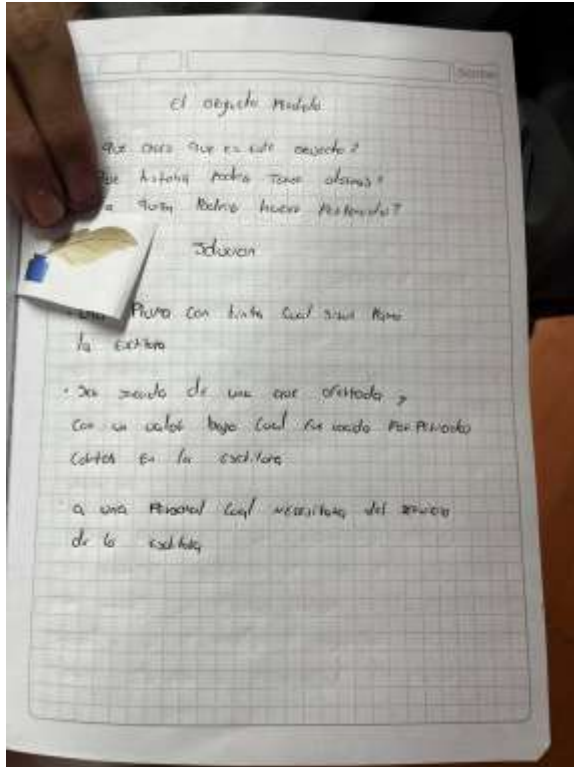 El objecto Perdido
Que crees que es este objecto?
Que historia Podria Tener atras?
a quien Podria haver Pertenecido?
Solucion
una Pluma con tinta cual sirve Para
la escritora
de una ave
con un valor bajo cual fue usado Por Periodos
cortos En la escritora
a una Personal cual necesitaba del servicio
de la escritora